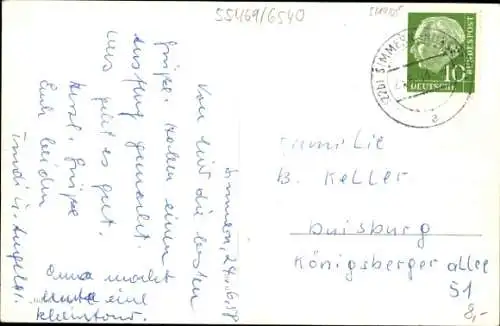 55469/6540
(22b) SIMMERN
a
DEUTSCHE
BUNDESPOST
10
Simmern, 24.6.58
Von hier die besten
Grüße. Haben einen
Ausflug gemacht.
Uns geht es gut.
Herzl. Grüße
Euch beiden
Trudi u.
Oma macht
heute eine
Kleintour.
Familie
B. Keller
Duisburg
Königsberger allee
51
8,-